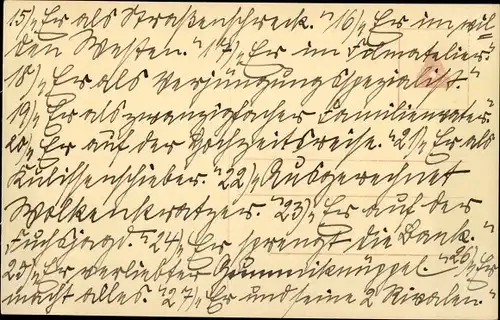 15) „Er als Straßenschreck." 16) „Er im wil-
den Westen." 17) „Er im Filmatelier."
18) „Er als Verjüngungsspezialist."
19) „Er als zwanzigfacher Familienvater."
20) „Er auf der Hochzeitsreise." 21) „Er als
Kulissenschieber." 22) „Ausgerechnet
Wolkenkratzer." 23) „Er auf der
Fuchsjagd." 24) „Er sprengt die Bank."
25) „Er verliebter Gummiknüppel." 26) „Er
macht alles." 27) „Er und seine 2 Rivalen."